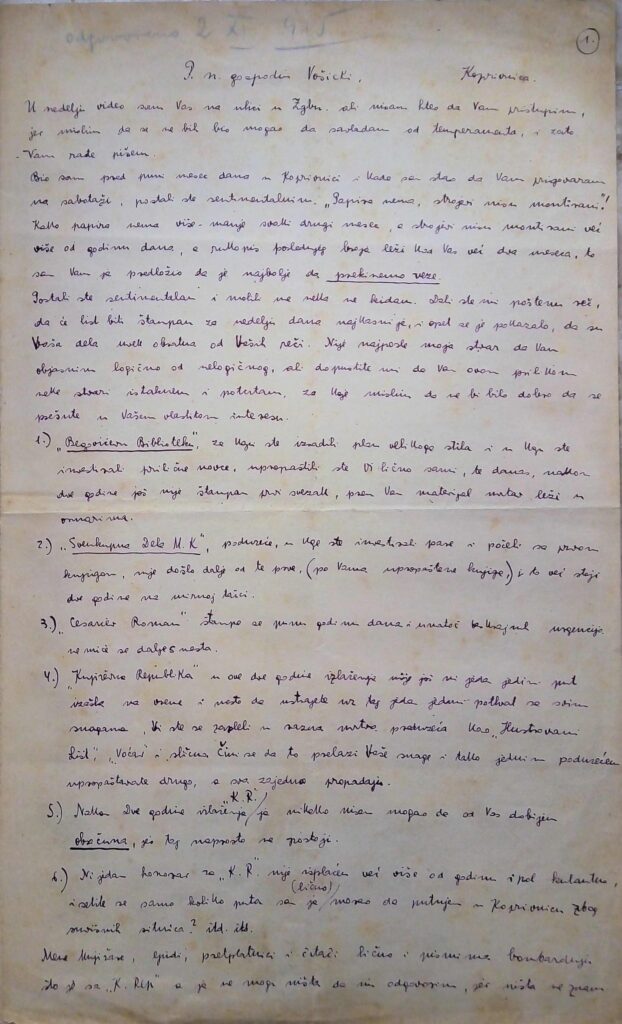 odgovoreno 2 XI 925
1.
P. n. gospodin Vošicki, Koprivnica.
U nedelju video sam Vas na ulici u Zgbu. ali nisam hteo da Vam pristupim,
jer mislim da se ne bih bio mogao da savladam od temperamenta, i zato
Vam rade pišem.
Bio sam pred puni mesec dana u Koprivnici i kada sam stao da Vam prigovaram
na sabotaži, postali ste sentimentalni. „Papira nema, strojevi nisu montirani"!
Kako papira nema više-manje svaki drugi mesec, a strojevi nisu montirani već
više od godinu dana, a rukopis poslednjeg broja leži kod Vas već dva meseca, to
sam Vam ja predložio da je najbolje da prekinemo veze.
Postali ste sentimentalni i molili me neka ne kidam. Dali ste mi poštenu reč,
da će list biti štampan za nedelju dana najkasnije, i opet se je pokazalo, da su
Vaša dela uvek obratna od Vaših reči. Nije najposle moja stvar da Vam
objasnim logično od nelogičnog, ali dopustite mi da Vam ovom prilikom
neke stvari istaknem i potcrtam, za koje mislim da ne bi bilo dobro da se
prešute u Vašem vlastitom interesu.
1.) „Begovićevu Biblioteku", za koju ste izradili plan velikoga stila i u koju ste
investirali prilične novce, upropastili ste Vi lično sami, te danas, nakon
dve godine još nije štampan prvi svezak, pren Vam materijal mrtav leži u
ormarima.
2.) „Sveukupna Dela M. K", poduzeće, u koje ste investirali pare i počeli sa prvom
knjigom, nije došlo dalje od te prve, (po Vama upropaštene knjige,) i to već stoji
dve godine na mrtvoj tački.
3.) „Cesarčev Roman" štampa se punu godinu dana i unatoč beskrajnih urgencija
ne miče se dalje s mesta.
4.) „Književna Republika" u ove dve godine izlaženja nije još ni jeda jedini put
izašla na vreme i mesto da ustrajete uz taj jeda jedini pothvat sa svim
snagama, Vi ste se zapleli u razna mrtva preduzeća kao „Ilustrovani
List", „Voćar" i slična. Čini se da to prelazi Vaše snage i tako jednim poduzećem
upropaštavate drugo, a sva zajedno propadaju.
5.) Nakon dve godine izlaženja „K.R." ja nikako nisam mogao da od Vas dobijem
obračuna, jer taj naprosto ne postoji.
6.) Ni jedan honorar za „K. R." nije isplaćen već više od godinu i pol kulantno,
i setite se samo koliko puta sam ja (lično) morao da putujem u Koprivnicu zbog
smiješnih sitnica? itd. itd.
Mene knjižare, ljudi, pretplatnici i čitači lično i pismima bombarduju
što je sa „K. Rep" a ja ne mogu ništa da im odgovorim, jer ništa ne znam